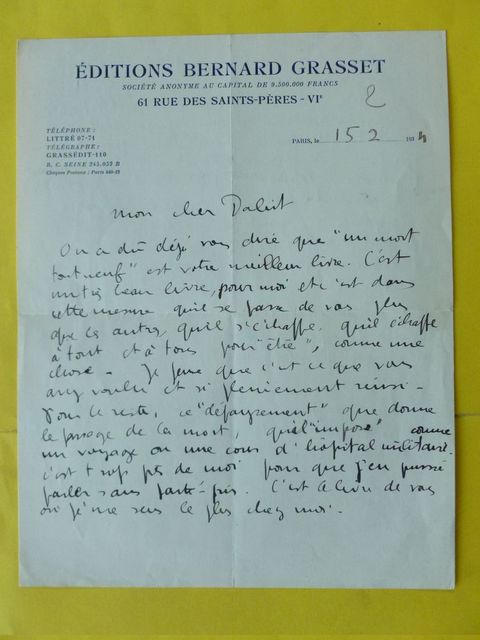 ÉDITIONS BERNARD GRASSET
SOCIÉTÉ ANONYME AU CAPITAL DE 9.500.000 FRANCS
61 RUE DES SAINTS-PÈRES - VIᵉ
2
TÉLÉPHONE :
LITTRÉ 07-71
TÉLÉGRAPHE :
GRASSÉDIT-110
R. C. SEINE 245.052 B
Chèques Postaux : Paris
PARIS, le 15 2 193
mon cher Dabit
On a dû déjà vous dire que "un mort
tout neuf" est votre meilleur livre. C'est
un très beau livre, pour moi et c'est dans
cette mesure qu'il se passe de vous plus
que les autres, qu'il s'échappe, qu'il échappe
à tout et à tous pour "être", comme une
chose. Je pense que c'est ce que vous
avez voulu et si pleinement réussi.
Pour le reste, ce "dépaysement" que donne
le passage de la mort, qu'il "impose" comme
un voyage ou une cour d'hôpital militaire.
c'est trop près de moi pour que j'en puisse
parler sans parti-pris. C'est le livre de vous
où je me sens le plus chez moi.